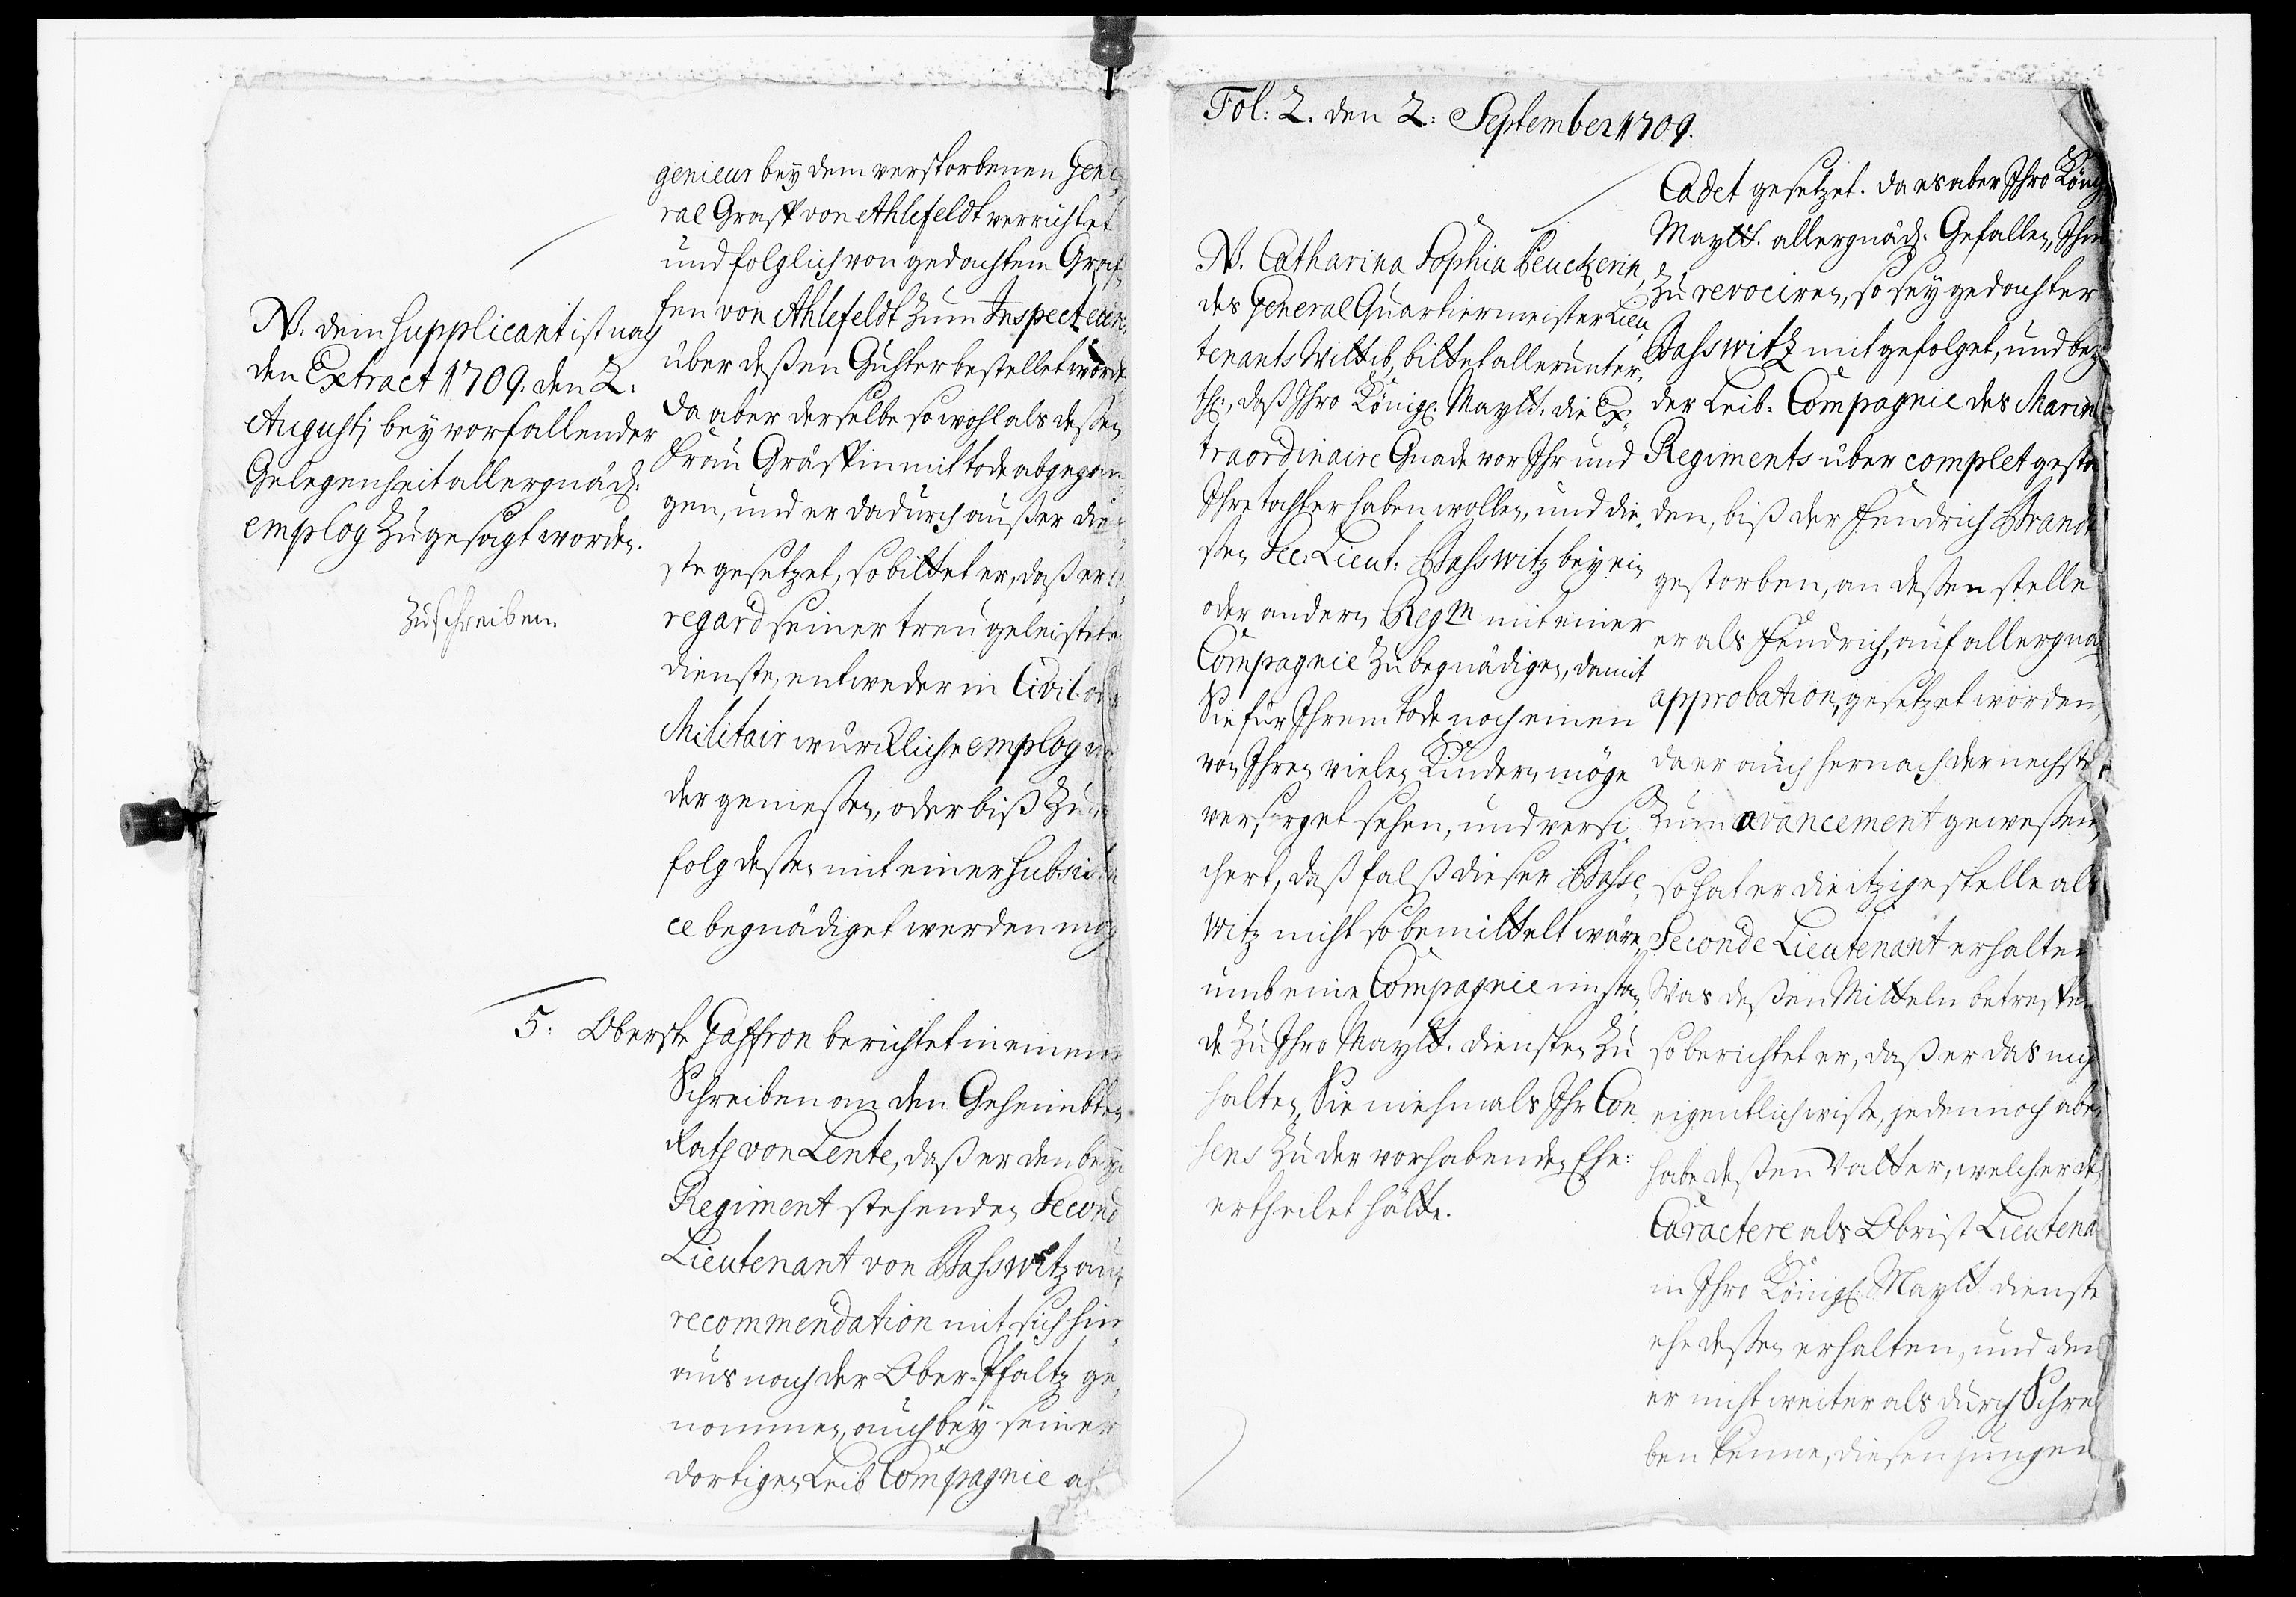 N. dem supplicant ist nach
den Extract 1709. den 2:
Augustj bey vorfallender
Gelegenheit allergnäd.
employ zugesagt worden.
zu schreiben
genieur bey dem verstorbenen Gene-
ral Graff von Ahlefeldt verrichtet
und folglich von gedachtem Graf-
fen von Ahlefeldt zum Inspecteur
über deßen Güther bestellet worde
da aber derselbe sowohl als deßen
Frau Gräffin mit tode abgegan-
gen, und er dadurch außer dien-
ste gesetzet, so bittet er, daß er
regard seiner treu geleistete
dienste, entweder in Civil oder
Militair würckliche employ wie
der genießen, oder biß zum
folg deßen mit einer Subsisten
ce begnädiget werden mög
5: Oberste Gaffron berichtet in einem
Schreiben an den Geheimbten
Rath von Lente, daß er den bey
Regiment stehenden Second
Lieutenant von Bassewitz auf
recommendation mit sich hin-
aus nach der Ober-Pfaltz ge-
nommen, auch bey seiner
dortigen Leib Compagnie als
Fol: 2. den 2: September 1709.
N. Catharina Sophia Peuckerin,
des General Quartiermeister Lieu
tenants Wittib, bittet allerunter-
th., daß Ihro Königl. Maytt. die Ex-
traordinaire Gnade vor Ihr und
Ihre tochter haben wollen, und die-
sen Sec. Lieut: Basswitz bey ein
oder andern Regm mit einer
Compagnie zu begnädigen, damit
Sie für Ihrem tode noch einen
von Ihren vielen Kindern möge
versorget sehen, und versi-
chert, daß falß dieser Basse-
witz nicht so bemittelt wäre,
umb eine Compagnie im stan-
de zu Ihro Maytt. diensten zu
halten, Sie niehmals Ihr Con-
sens zu der vorhabenden Ehe
ertheilet hätte.
Cadet gesetzet. da es aber Ihro König
Maytt. allergnäd. Gefallen, Ihn
zu revociren, so sey gedachter
Basswitz mit gefolget, und bey
der Leib-Compagnie des Marin
Regiments über complet gestan
den, biß der Fendrich Brande
gestorben, an deßen stelle
er als Fendrich, auf allergnä
approbation, gesetzet worden,
da er auch hernach der nechste
zum avancement gewesen,
so hat er die itzige stelle als
Seconde Lieutenant erhalten
Was deßen Mitteln betreffen
so berichtet er, daß er das nich
eigentlich wiße, jedennoch aber
habe deßen Vatter, welcher de
Caractere als Obrist Lieutena
in Ihro Königl. Maytt. dienste
ehe deßen erhalten, und den
er nicht weiter als durch Schrei
ben kenne, diesen jungen